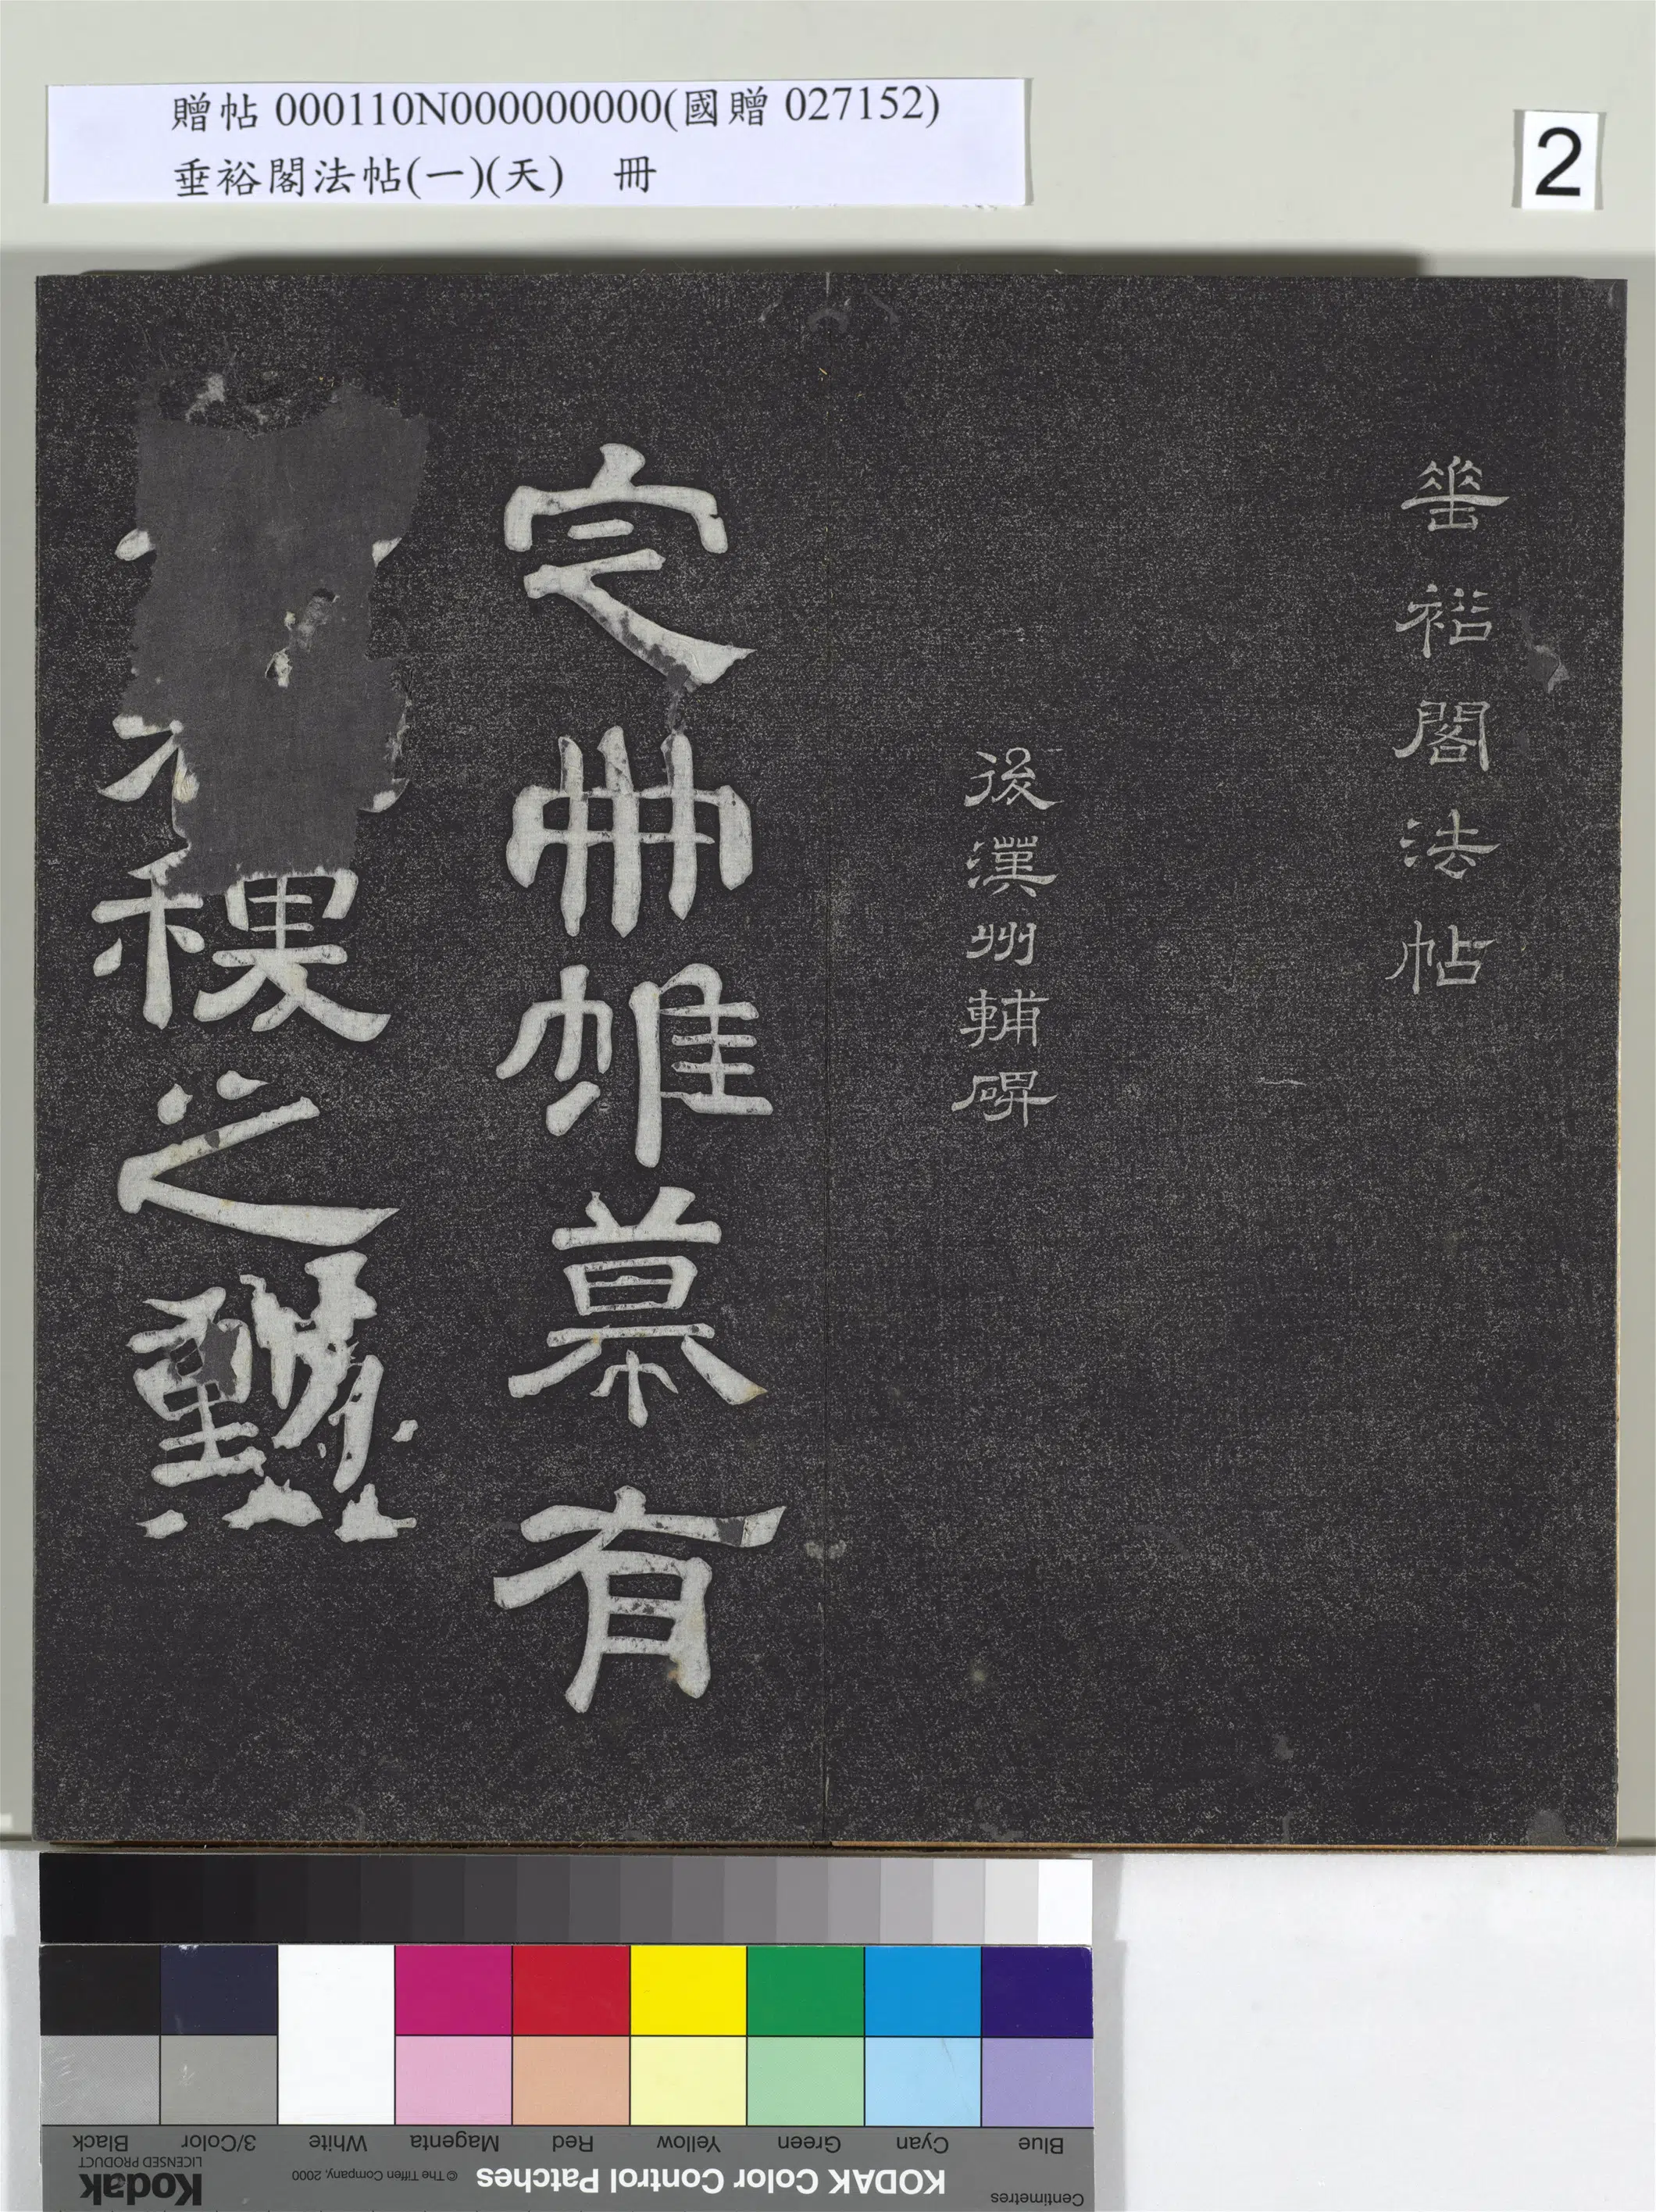 贈帖 000110N000000000(國贈 027152)
垂裕閣法帖(一)(天) 冊
2
垂裕閣法帖
後漢州輔碑
定冊帷幕有
稷之勳
Blue
Cyan
Green
Yellow
Red
Magenta
White
3/Color
Black
Centimetres
KODAK Color Control Patches
© The Tiffen Company, 2000
Kodak
LICENSED PRODUCT